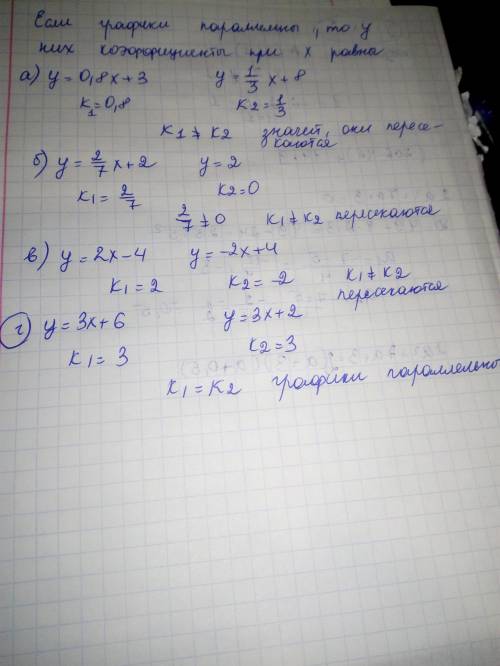 Если графики параллельны, то у
них коэффициенты при x равны
а) y = 0,8x + 3 y = 1/3 x + 8
k₁ = 0,8 k₂ = 1/3
k₁ ≠ k₂ значит, они пересе-
каются
б) y = 2/7 x + 2 y = 2
k₁ = 2/7 k₂ = 0
2/7 ≠ 0 k₁ ≠ k₂ пересекаются
в) y = 2x - 4 y = -2x + 4
k₁ = 2 k₂ = -2 k₁ ≠ k₂
пересекаются
г) y = 3x + 6 y = 3x + 2
k₁ = 3 k₂ = 3
k₁ = k₂ графики параллельно